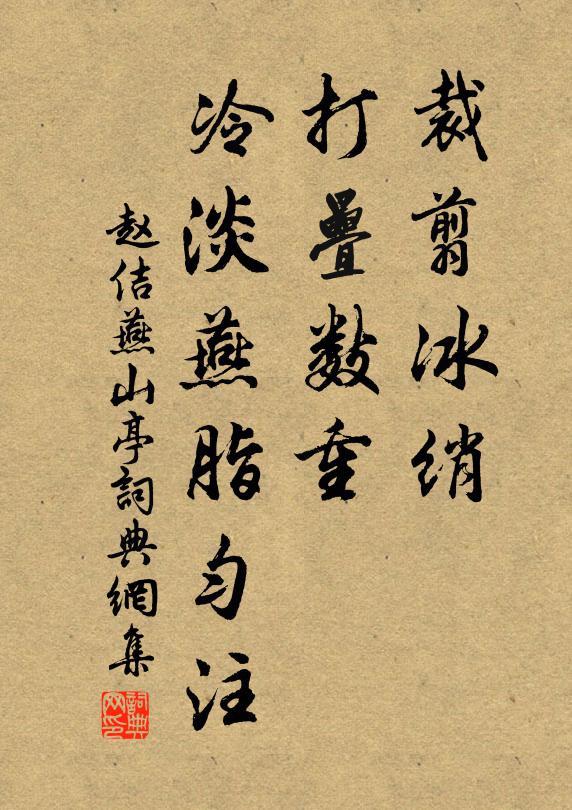 裁剪冰绡
打疊數重
冷淡燕脂匀注
赵佶燕山亭詞典網集
詞典网印